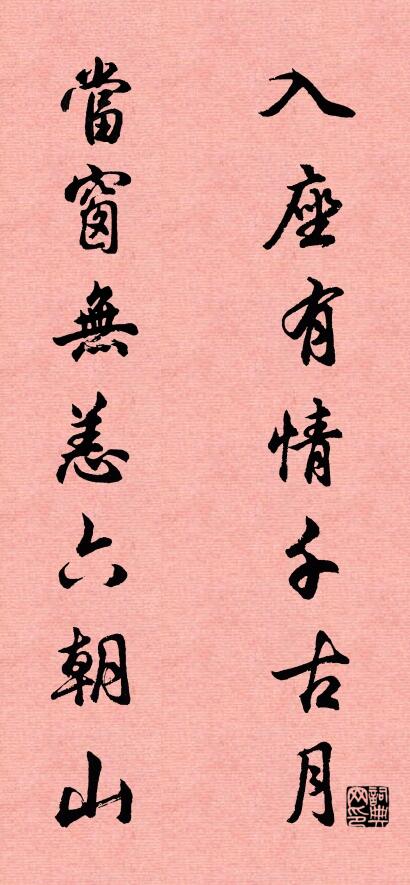 入座有情千古月
當窗無恙六朝山
詞典網印